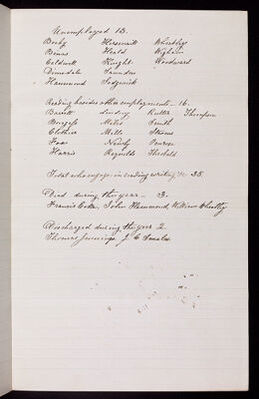 Unemployed 13.
Busby Hesswelt Whistley
Binns Heald Wigham
Caldwell Knight Woodward
Dimsdale Saunders
Hammond Sedgwick
Reading besides other employment - 16.
Barrett Lindsey Rutter Thompson
Burgess Miles Smith
Clothier Mills Stevens
Fox Newby Penrose
Harris Reynolds Theobald
Total who engage in reading writing &c 35.
Died during the year - 3.
Francis Coke, John Hammond, William Whistley
Discharged during the year 2
Thomas Jennings, J. C.